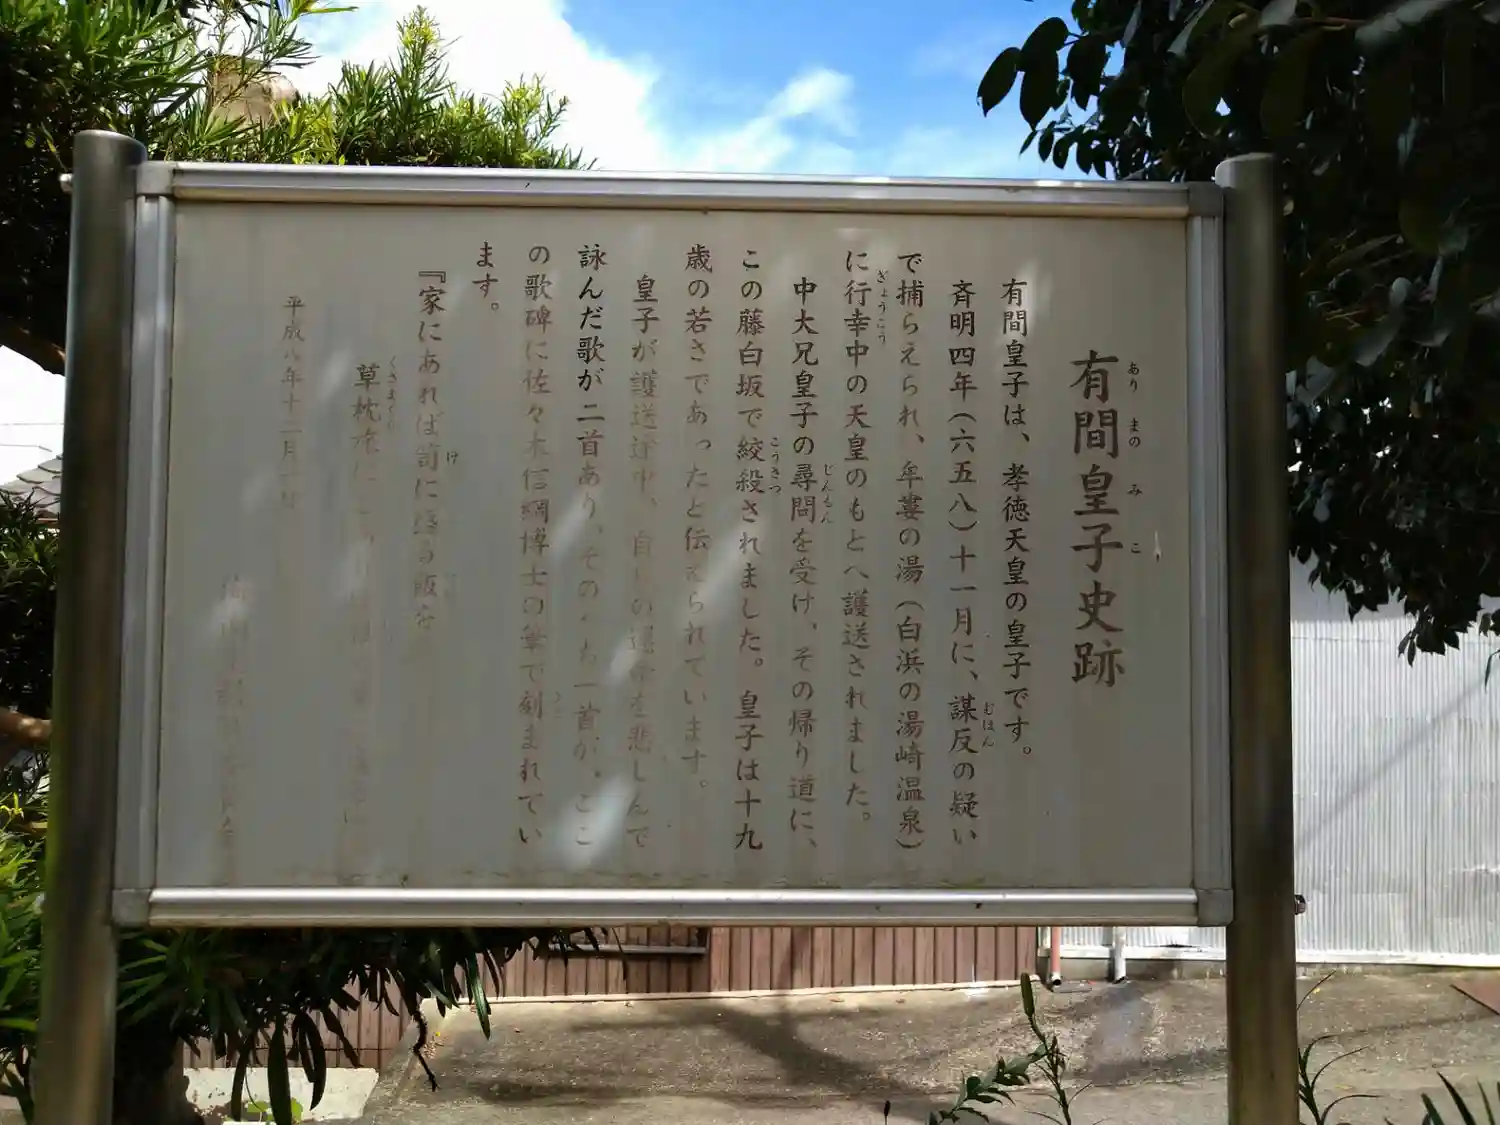 有間皇子史跡
ありまのみこ
有間皇子は、孝徳天皇の皇子です。
斉明四年(六五八)十一月に、謀反の疑い
むほん
で捕らえられ、牟婁の湯(白浜の湯崎温泉)
に行幸中の天皇のもとへ護送されました。
ぎょうこう
中大兄皇子の尋問を受け、その帰り道に、
じんもん
この藤白坂で絞殺されました。皇子は十九
こうさつ
歳の若さであったと伝えられています。
皇子が護送途中、自らの運命を悲しんで
詠んだ歌が二首あり、そのうち一首が、ここ
の歌碑に佐々木信綱博士の筆で刻まれてい
ます。
『家にあれば笥に盛る飯を
け
草枕旅に
くさまくら
平成八年十二月